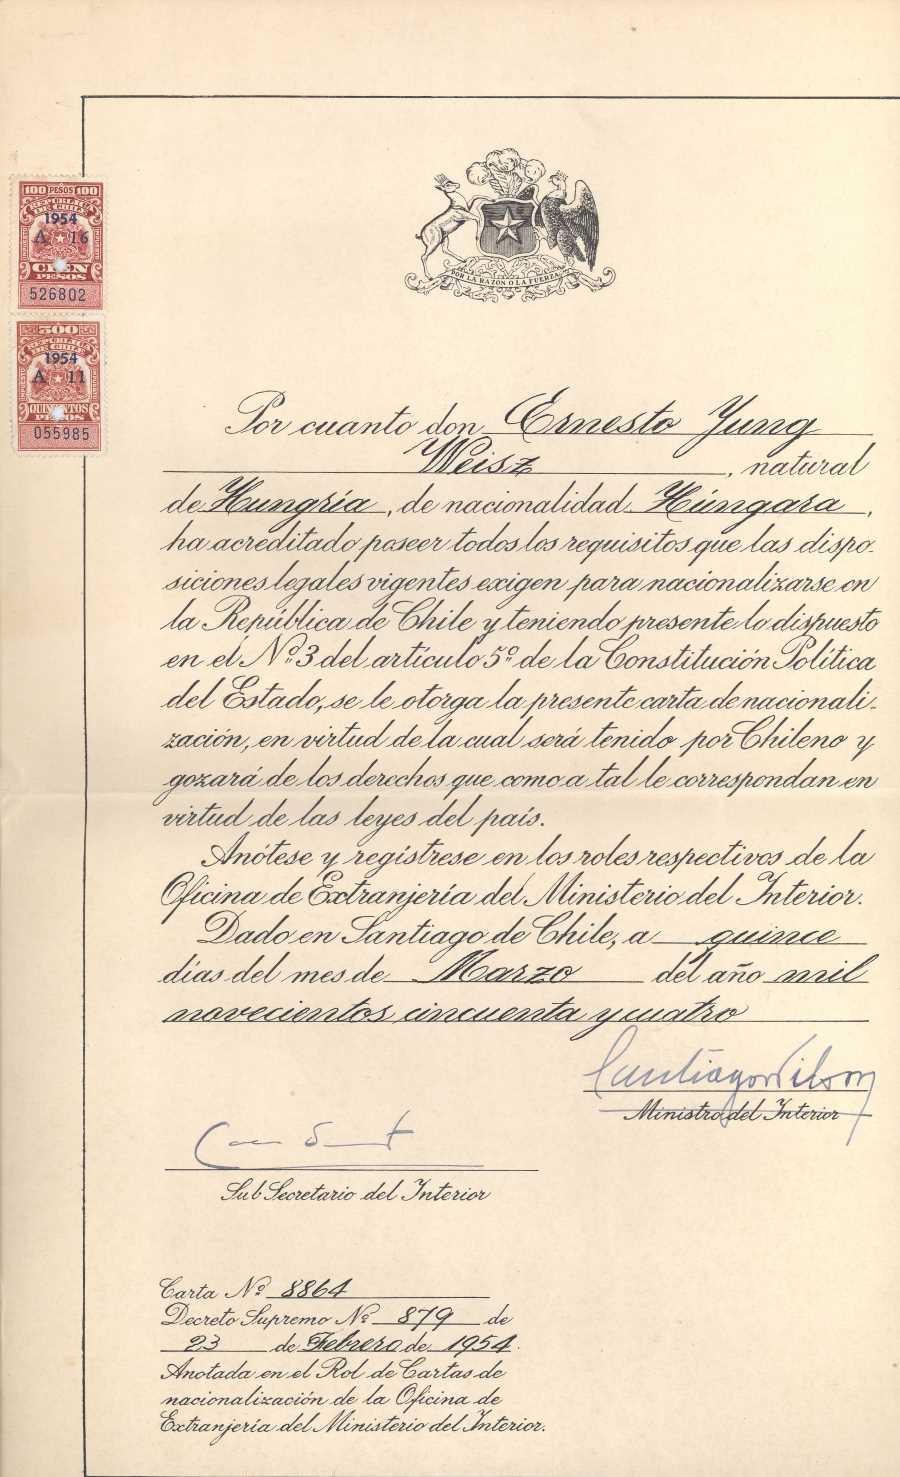 100 PESOS 100
REPUBLICA
DE CHILE
1954
A 16
CIEN
PESOS
526802
500
REPUBLICA
DE CHILE
1954
A 11
QUINIENTOS
PESOS
055985
POR LA RAZON O LA FUERZA
Por cuanto don Ernesto Yung
Weisz, natural
de Hungría, de nacionalidad Húngara,
ha acreditado poseer todos los requisitos que las dispo-
siciones legales vigentes exigen para nacionalizarse en
la República de Chile y teniendo presente lo dispuesto
en el Nº 3 del artículo 5º de la Constitución Política
del Estado, se le otorga la presente carta de nacionali-
zación, en virtud de la cual será tenido por Chileno y
gozará de los derechos que como a tal le correspondan en
virtud de las leyes del país.
Anótese y regístrese en los roles respectivos de la
Oficina de Extranjería del Ministerio del Interior.
Dado en Santiago de Chile, a quince
días del mes de Marzo del año mil
novecientos cincuenta y cuatro
Santiago Wilson
Ministro del Interior
Sub Secretario del Interior
Carta Nº 8864
Decreto Supremo Nº 879 de
23 de Febrero de 1954.
Anotada en el Rol de Cartas de
nacionalización de la Oficina de
Extranjería del Ministerio del Interior.